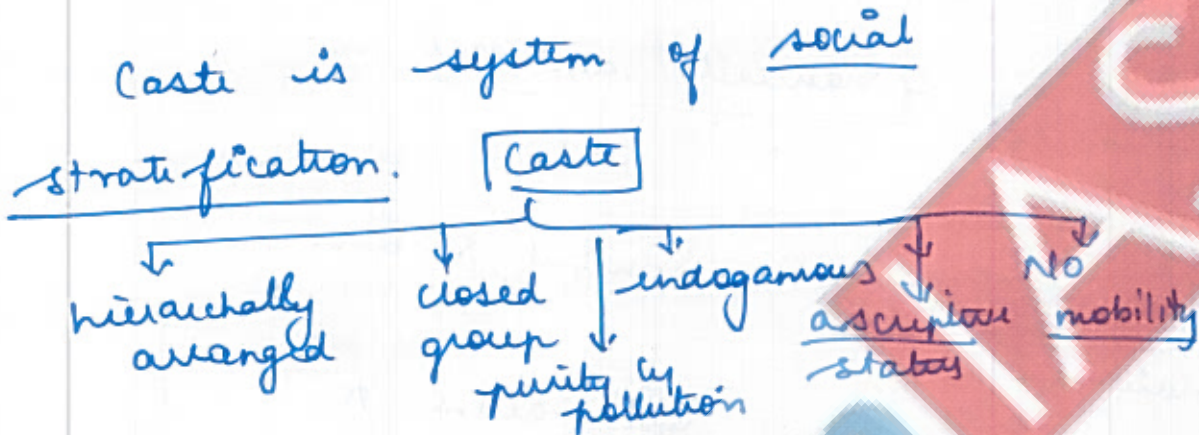 Caste is system of social
stratification.
Caste
hierarchally
arranged
closed
group
purity &
pollution
endogamous
ascriptive
status
No
mobility
IAS